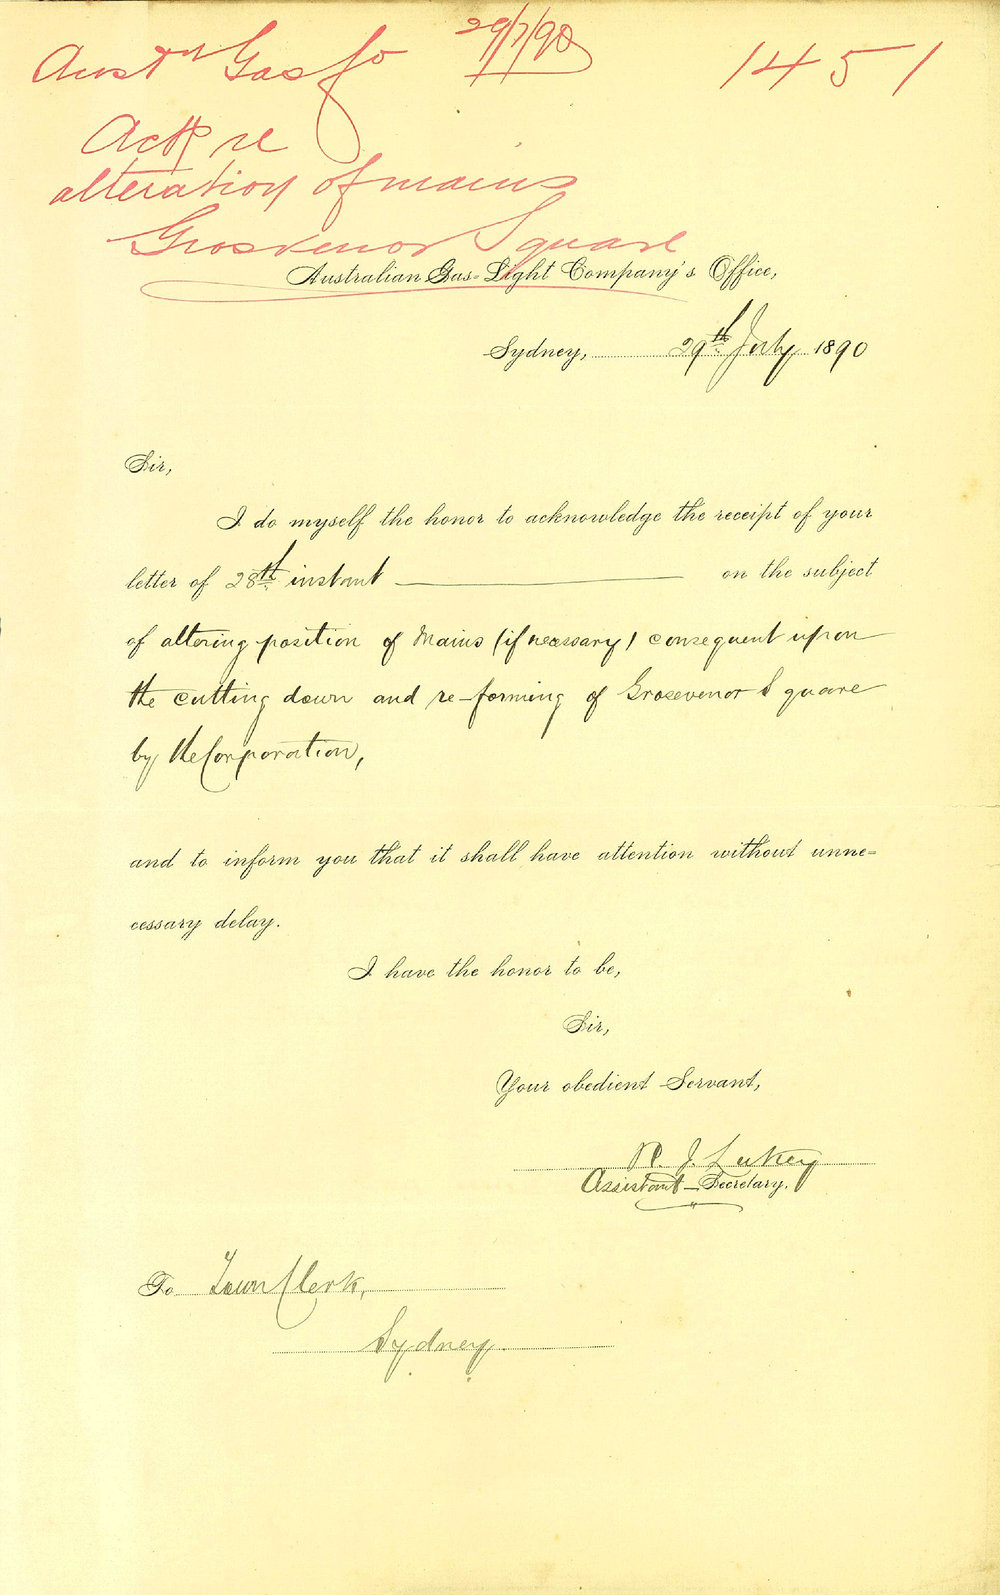 Austn Gas Co 29/7/90 1451
Ack re
alteration of mains
Grosvenor Square
Australian Gas-Light Company's Office,
Sydney, 29th July 1890
Sir,
I do myself the honor to acknowledge the receipt of your
letter of 28th instant on the subject
of altering position of Mains (if necessary) consequent upon
the cutting down and re-forming of Grosevenor Square
by the Corporation,
and to inform you that it shall have attention without unne=
cessary delay.
I have the honor to be,
Sir,
Your obedient Servant,
R. J. Lukey
Assistant-Secretary.
To Town Clerk,
Sydney.